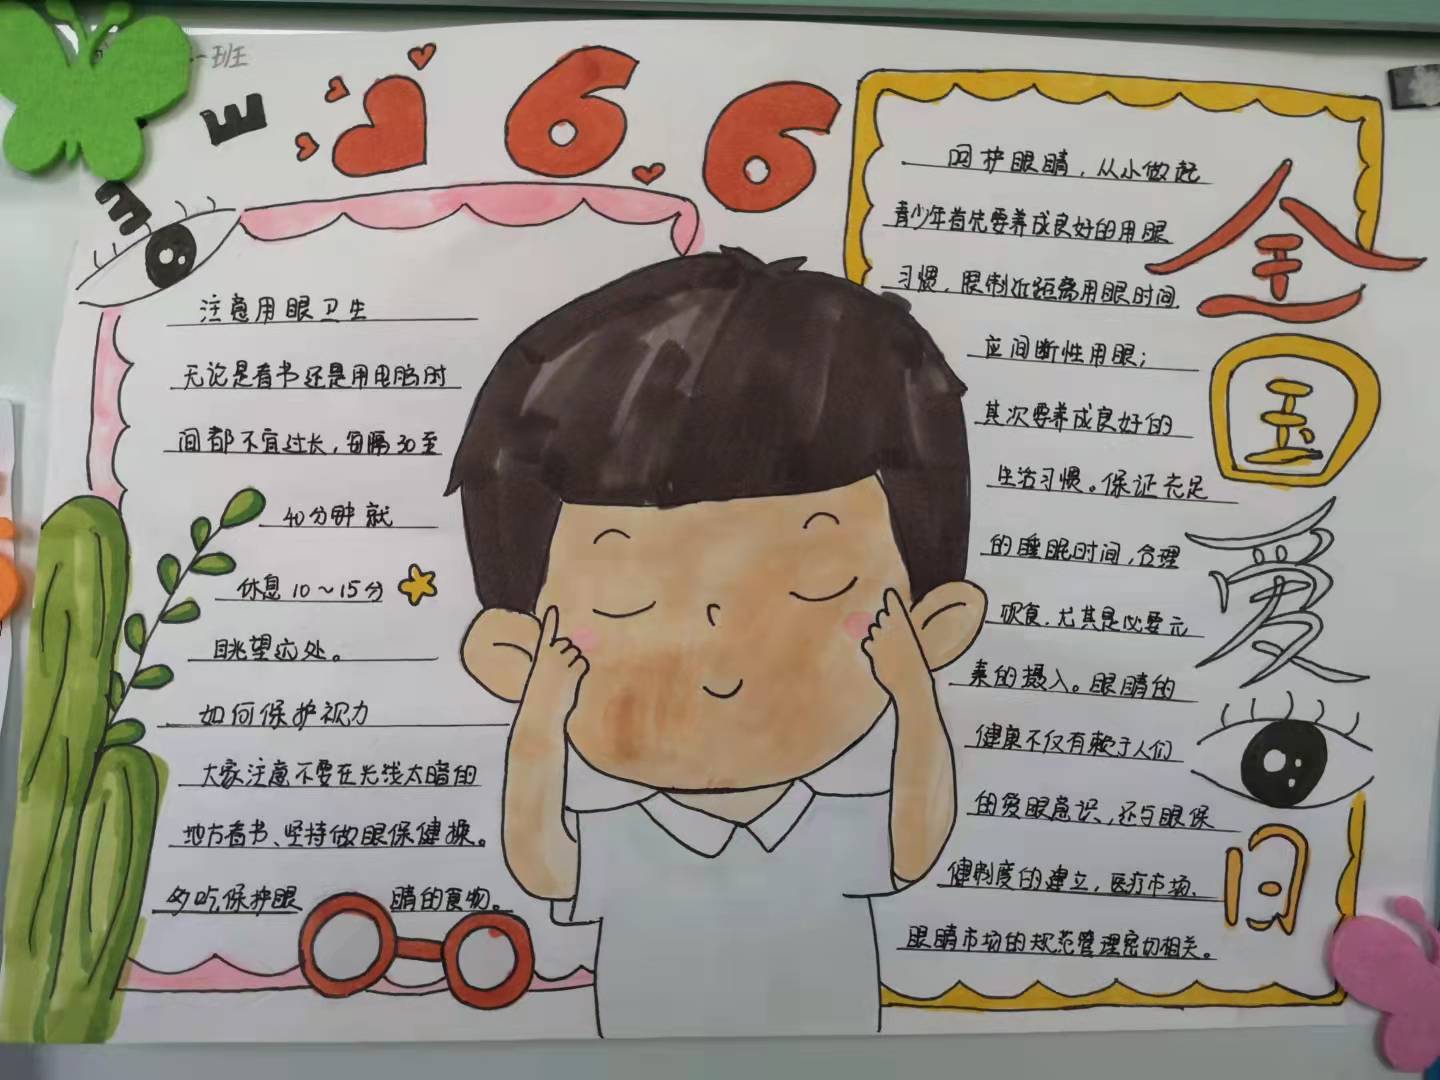 一班
E
E
66
注意用眼卫生
无论是看书还是用电脑时
间都不宜过长，每隔30至
40分钟就
休息10～15分
眺望远处。
如何保护视力
大家注意不要在光线太暗的
地方看书、坚持做眼保健操。
多吃保护眼睛的食物。
呵护眼睛，从小做起
青少年首先要养成良好的用眼
习惯，限制近距离用眼时间
应间断性用眼；
其次要养成良好的
生活习惯。保证充足
的睡眠时间，合理
饮食，尤其是必要元
素的摄入。眼睛的
健康不仅有赖于人们
的爱眼意识，还与眼保
健制度的建立，医疗市场、
眼睛市场的规范管理密切相关。
全
国
爱
日